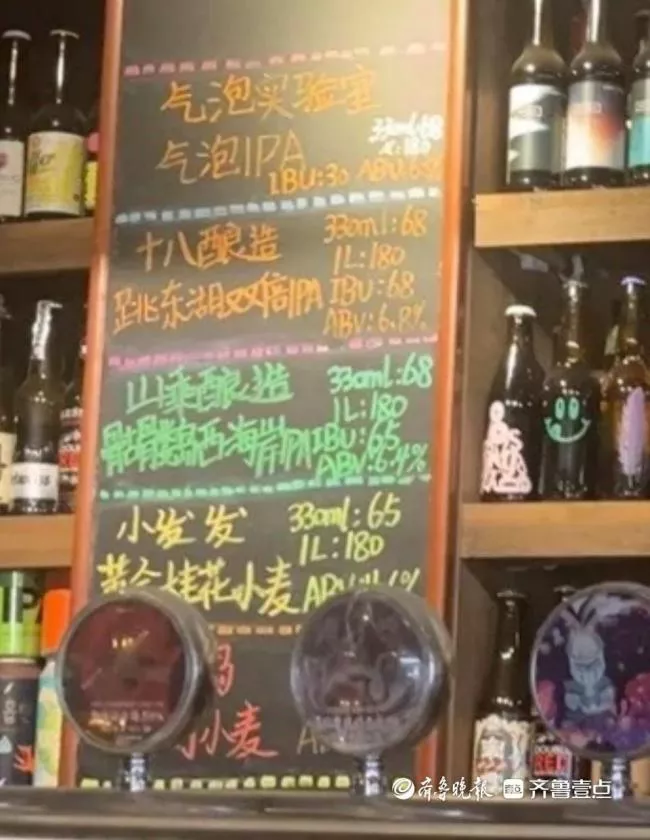 气泡实验室
330ml:68
气泡IPA
1L:180
IBU:30 ABV:6
十八酿造 330ml:68
1L:180
跳东湖双倍IPA IBU:68
ABV:6.8%
山乘酿造 330ml:68
1L:180
骷髅岛西海岸IPA IBU:65
ABV:6.4%
小发发 330ml:65
1L:180
黄金桂花小麦 ABV:4.6%
小麦
RED
齐鲁晚报 齐鲁壹点